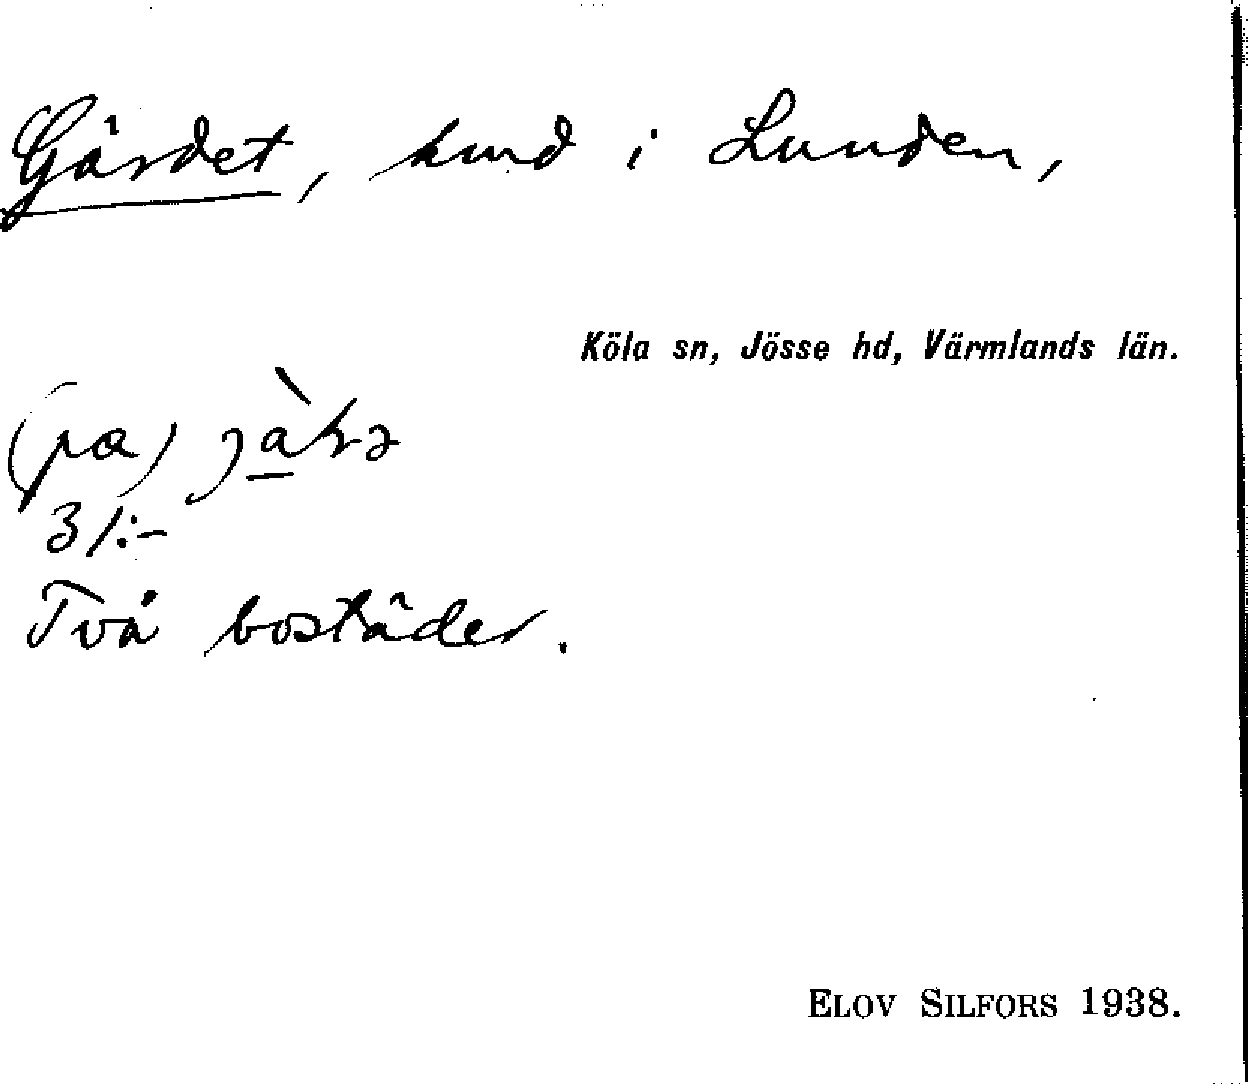 Gärdet, hmd i Lunden,
Köla sn, Jösse hd, Värmlands län.
(pα)
3/:-
Två bostäder.
ELOV SILFORS 1938.